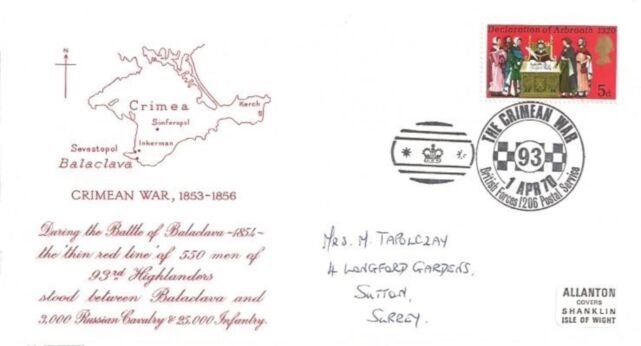 N
Crimea
Kerch
Simferopol
Sevastopol
Inkerman
Balaclava
CRIMEAN WAR, 1853-1856
During the Battle of Balaclava -1854-
the 'thin red line' of 550 men of
93rd Highlanders
stood between Balaclava and
3,000 Russian Cavalry & 25,000 Infantry.
Declaration of Arbroath 1320
5d
THE CRIMEAN WAR
93
1 APR 70
British Forces 1206 Postal Service
MRS. M. TAPOLCZAY
4 LONGFORD GARDENS,
SUTTON,
SURREY.
ALLANTON
COVERS
SHANKLIN
ISLE OF WIGHT